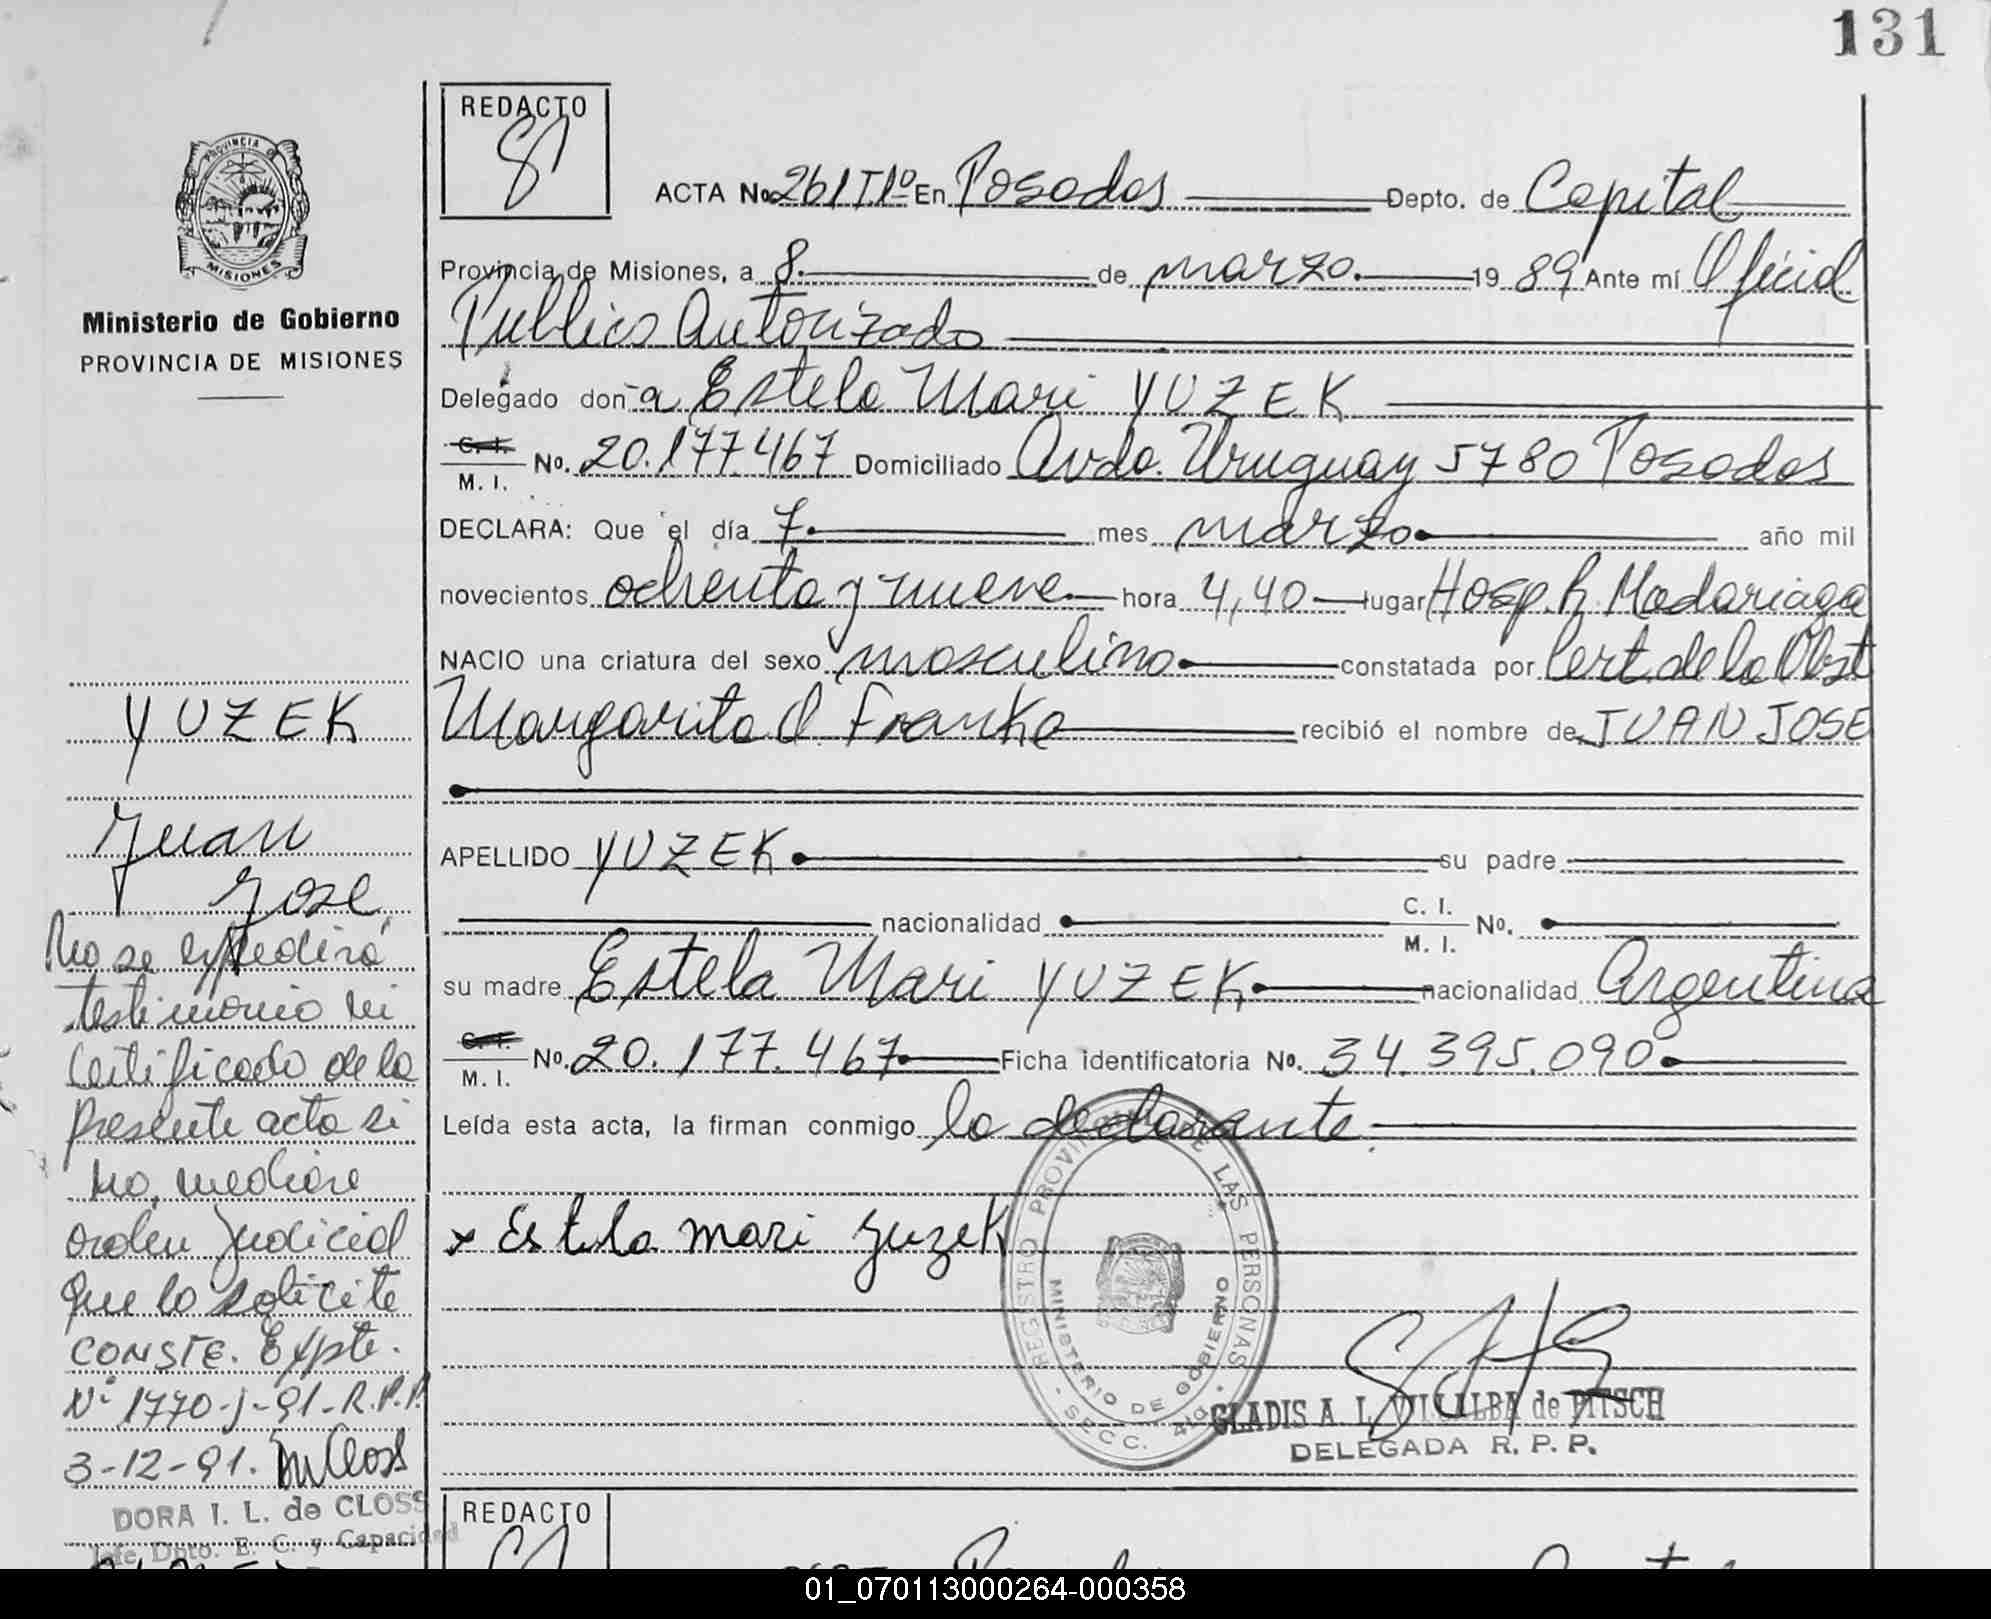 131
REDACTO
ACTA No. 261 T1º En Posadas Depto. de Capital
Provincia de Misiones, a 8 de marzo 19 89 Ante mí Oficial
Publico Autorizado
Delegado doña Estela Mari YUZEK
C. I.
M. I. No. 20.177.467 Domiciliado Avda. Uruguay 5780 Posadas
DECLARA: Que el día 7 mes marzo año mil
novecientos ochenta y nueve hora 4,40 lugar Hosp. R. Madariaga
NACIO una criatura del sexo masculino constatada por Cert. de la Obst
Margarita Franke recibió el nombre de JUAN JOSE
APELLIDO YUZEK su padre
nacionalidad C. I.
M. I. No.
su madre Estela Mari YUZEK nacionalidad Argentina
C. I.
M. I. No. 20.177.467 Ficha identificatoria No. 34.395.090
Leída esta acta, la firman conmigo la declarante
x Estela mari yuzek
REGISTRO PROVINCIAL DE LAS PERSONAS
MINISTERIO DE GOBIERNO
SECC. 4ta
GLADIS A. L. VILLALBA de PITSCH
DELEGADA R. P. P.
PROVINCIA DE
MISIONES
Ministerio de Gobierno
PROVINCIA DE MISIONES
YUZEK
Juan
Jose
No se expedirá
testimonio ni
certificado de la
presente acta si
no mediare
orden Judicial
que lo solicite
CONSTE. Expte.
Nº 1770-J-91-R.P.P.
3-12-91.
DORA I. L. de CLOSS
Jefe Dpto. E. C. y Capacidad
REDACTO
01_070113000264-000358